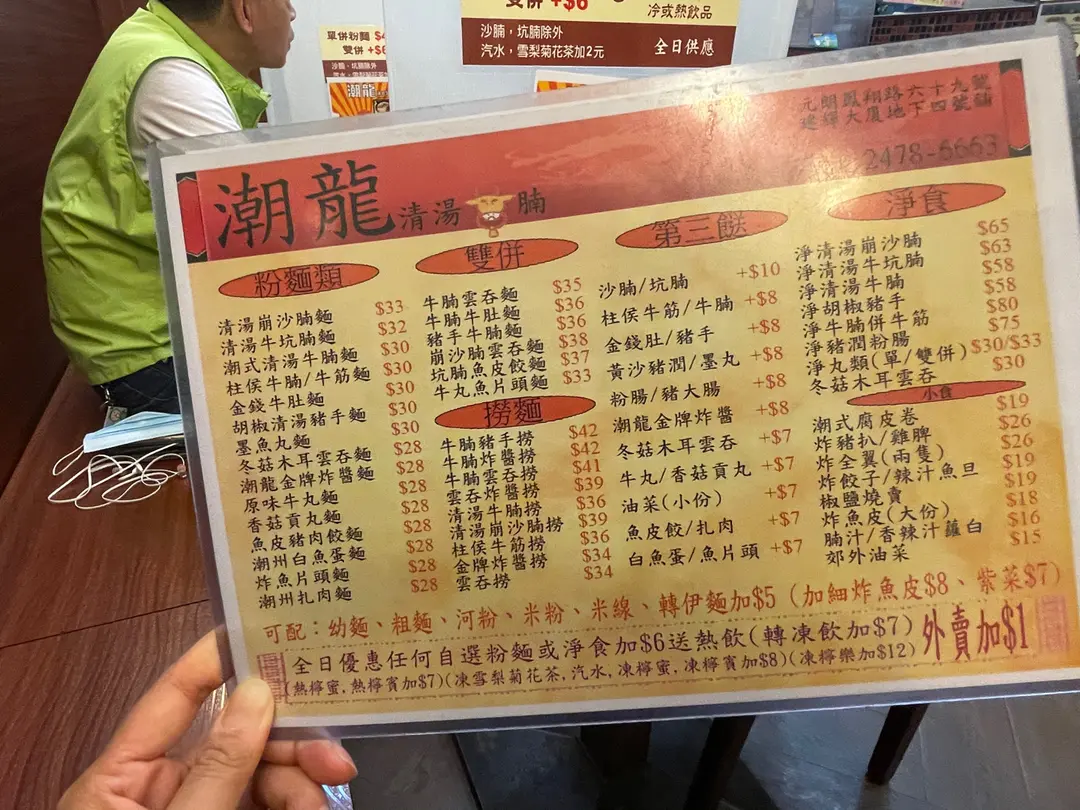 單併粉麵 $4
雙併 +$6
沙腩，坑腩除外
潮龍
雙併 +$6
冷或熱飲品
沙腩，坑腩除外
汽水，雪梨菊花茶加2元
全日供應
潮龍 清湯腩
元朗鳳翔路六十九號
建輝大廈地下四號舖
2478-6663
粉麵類
清湯崩沙腩麵 $33
清湯牛坑腩麵 $32
潮式清湯牛腩麵 $30
柱侯牛腩/牛筋麵 $30
金錢牛肚麵 $30
胡椒清湯豬手麵 $30
墨魚丸麵 $30
冬菇木耳雲吞麵 $28
潮龍金牌炸醬麵 $28
原味牛丸麵 $28
香菇貢丸麵 $28
魚皮豬肉餃麵 $28
潮州白魚蛋麵 $28
炸魚片頭麵 $28
潮州扎肉麵 $28
雙併
牛腩雲吞麵 $35
牛腩牛肚麵 $36
豬手牛腩麵 $36
崩沙腩雲吞麵 $38
坑腩魚皮餃麵 $37
牛丸魚片頭麵 $33
撈麵
牛腩豬手撈 $42
牛腩炸醬撈 $42
牛腩雲吞撈 $41
雲吞炸醬撈 $39
清湯牛腩撈 $36
清湯崩沙腩撈 $39
柱侯牛筋撈 $36
金牌炸醬撈 $34
雲吞撈 $34
第三餸
沙腩/坑腩 +$10
柱侯牛筋/牛腩 +$8
金錢肚/豬手 +$8
黃沙豬潤/墨丸 +$8
粉腸/豬大腸 +$8
潮龍金牌炸醬 +$8
冬菇木耳雲吞 +$7
牛丸/香菇貢丸 +$7
油菜(小份) +$7
魚皮餃/扎肉 +$7
白魚蛋/魚片頭 +$7
淨食
淨清湯崩沙腩 $65
淨清湯牛坑腩 $63
淨清湯牛腩 $58
淨胡椒豬手 $58
淨牛腩併牛筋 $80
淨豬潤粉腸 $75
淨丸類(單/雙併) $30/$33
冬菇木耳雲吞 $30
小食
潮式腐皮卷 $19
炸豬扒/雞脾 $26
炸全翼(兩隻) $26
炸餃子/辣汁魚旦 $19
椒鹽燒賣 $19
炸魚皮(大份) $18
腩汁/香辣汁蘿白 $16
郊外油菜 $15
可配：幼麵、粗麵、河粉、米粉、米線、轉伊麵加$5 (加細炸魚皮$8、紫菜$7)
全日優惠任何自選粉麵或淨食加$6送熱飲(轉凍飲加$7)
(熱檸蜜,熱檸賓加$7)(凍雪梨菊花茶,汽水,凍檸蜜,凍檸賓加$8)(凍檸樂加$12)
外賣加$1